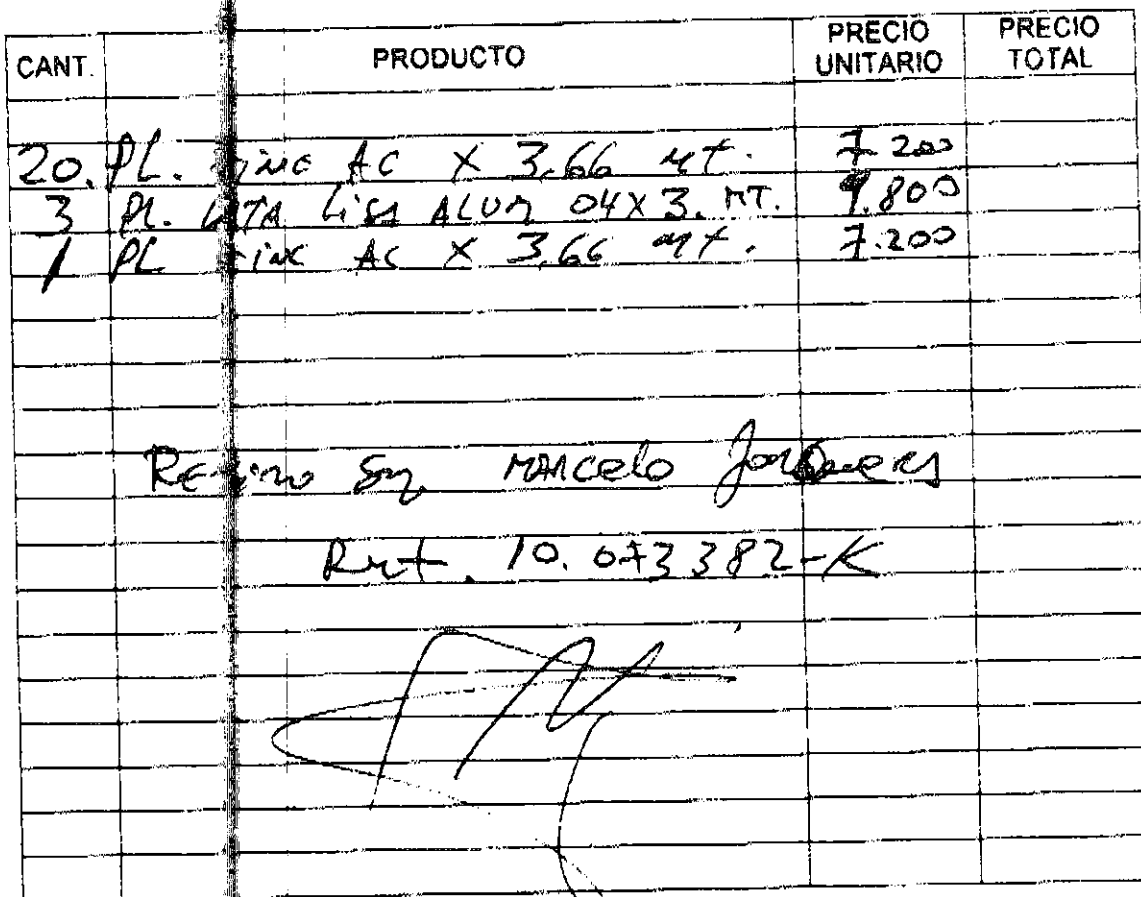 CANT. PRODUCTO PRECIO UNITARIO PRECIO TOTAL
20. PL. ZINC AC X 3,66 mt. 7.200
3 PL. LATA LISA ALUM 04 X 3. MT. 9.800
1 PL ZINC AC X 3,66 mt. 7.200
Retiro Sr MARCELO
Rut. 10.073382-K